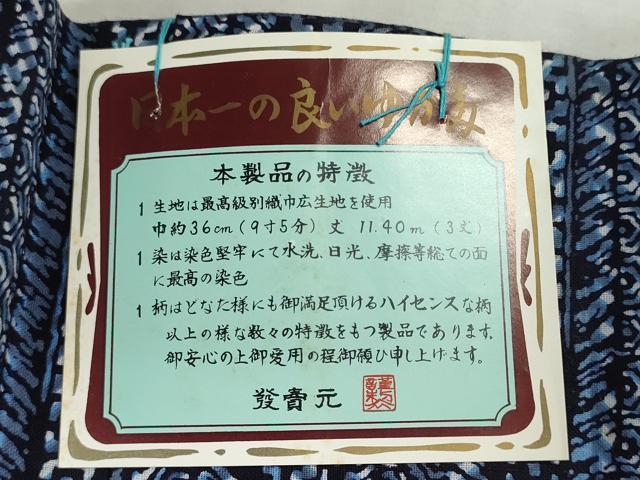 日本一の良いゆかた
本製品の特徴
1 生地は最高級別織巾広生地を使用
巾約36cm(9寸5分)丈 11.40m(3丈)
1 染は染色堅牢にて水洗、日光、摩擦等総ての面
に最高の染色
1 柄はどなた様にも御満足頂けるハイセンスな柄
以上の様な数々の特徴をもつ製品であります。
御安心の上御愛用の程御願ひ申し上げます。
發賣元